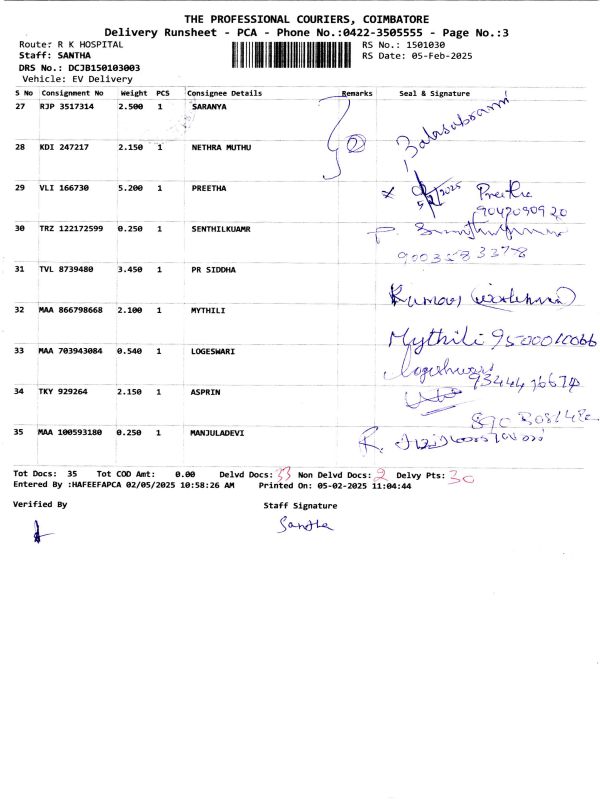 THE PROFESSIONAL COURIERS, COIMBATORE
Delivery Runsheet - PCA - Phone No.:0422-3505555 - Page No.:3
Route: R K HOSPITAL
RS No.: 1501030
Staff: SANTHA
RS Date: 05-Feb-2025
DRS No.: DCJB150103003
Vehicle: EV Delivery
S No Consignment No Weight PCS Consignee Details Remarks Seal & Signature
27 RJP 3517314 2.500 1 SARANYA
28 KDI 247217 2.150 1 NETHRA MUTHU
29 VLI 166730 5.200 1 PREETHA Preetha
30 TRZ 122172599 0.250 1 SENTHILKUAMR
9003583378
31 TVL 8739480 3.450 1 PR SIDDHA
Kumar
32 MAA 866798668 2.100 1 MYTHILI
Mythili 9500010066
33 MAA 703943084 0.540 1 LOGESWARI
logeshwari
34 TKY 929264 2.150 1 ASPRIN
35 MAA 100593180 0.250 1 MANJULADEVI
Tot Docs: 35 Tot COD Amt: 0.00 Delvd Docs: 33 Non Delvd Docs: 2 Delvy Pts: 30
Entered By :HAFEEFAPCA 02/05/2025 10:58:26 AM Printed On: 05-02-2025 11:04:44
Verified By Staff Signature
Santha